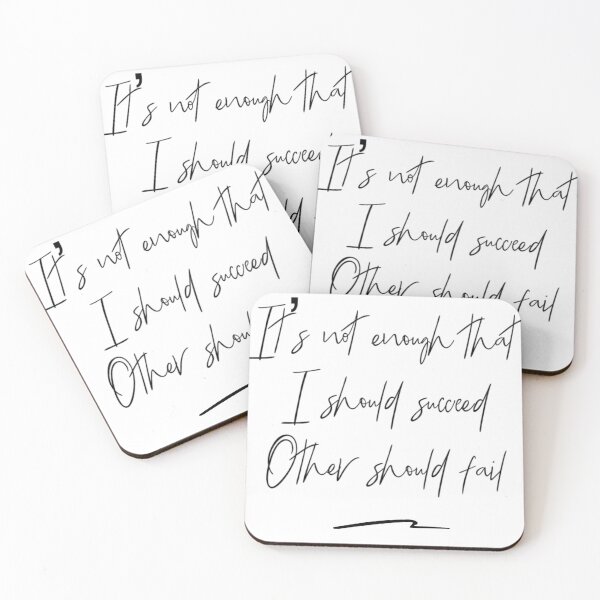 It's not enough that
I should
It's not enough that
I should succeed
Other should fail
It's not enough that
I should succeed
Other
It's not enough that
I should succeed
Other should fail